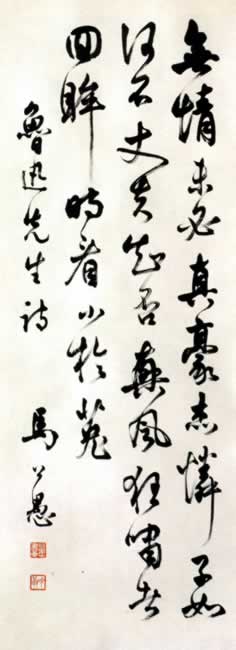 無情未必真豪杰憐子如
何不丈夫知否興風狂嘯者
回眸時看小於菟
魯迅先生詩
馬公愚